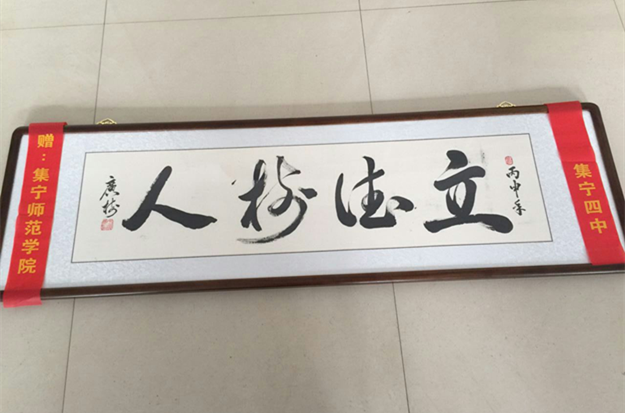 赠：集宁师范学院
丙申年
立德树人
广树
集宁四中